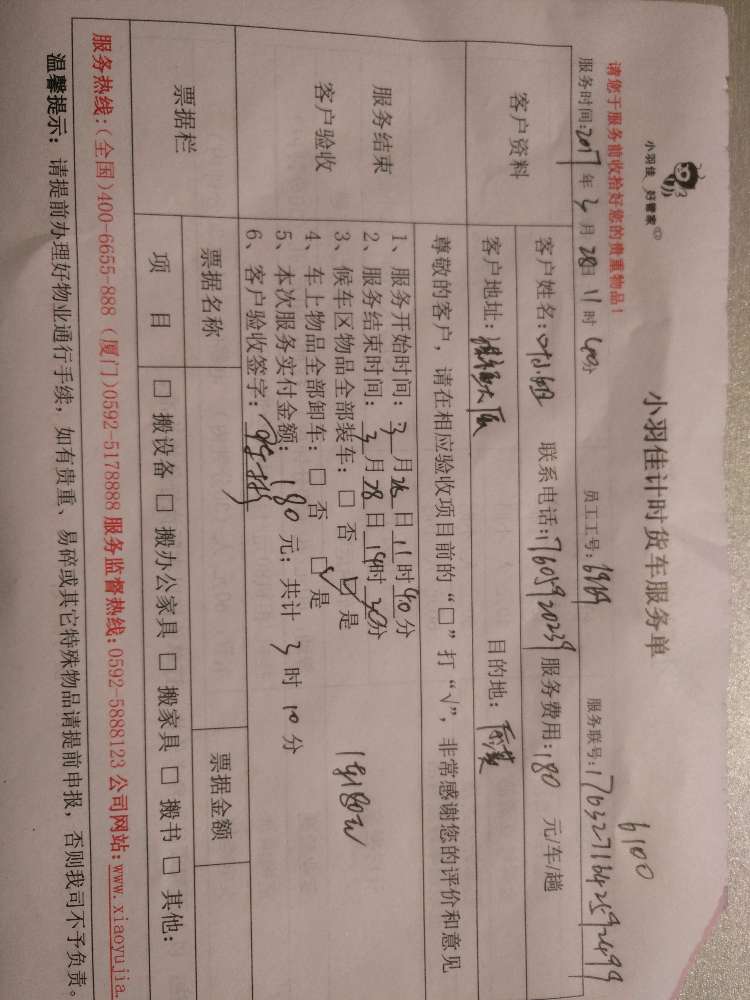 小羽佳 好管家
小羽佳计时货车服务单
6100
请您于服务前收拾好您的贵重物品！
服务时间：2017年3月28日11时40分 员工工号：6969 服务联号：1703271642592499
客户资料
客户姓名：叶小姐 联系电话：17605920239 服务费用：180 元/车/趟
客户地址： 目的地：
服务结束
客户验收
尊敬的客户，请在相应验收项目前的“□”打“√”，非常感谢您的评价和意见
1、服务开始时间：3月28日11时40分
2、服务结束时间：3月28日14时50分
3、候车区物品全部装车：□ 否 ☑ 是
4、车上物品全部卸车：□ 否 ☑ 是
5、本次服务实付金额：180元；共计 3时10分
6、客户验收签字：
票据栏
票据名称 票据金额
项 目 □ 搬设备 □ 搬办公家具 □ 搬家具 □ 搬书 □ 其他：
服务热线：(全国)400-6655-888 (厦门)0592-5178888 服务监督热线：0592-5888123 公司网站：www.xiaoyujia.
温馨提示：请提前办理好物业通行手续，如有贵重、易碎或其它特殊物品请提前申报，否则我司不予负责。